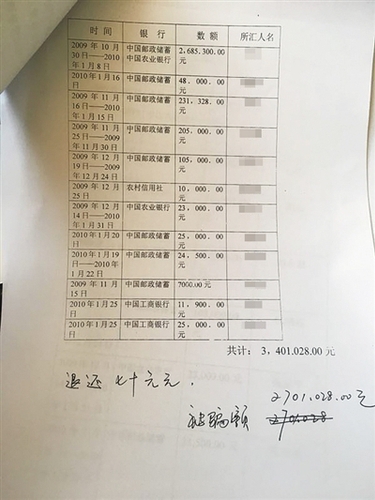 时 间 银 行 数 额 所汇人名
2009 年 10 月 30 日——2010 年 1 月 8 日 中国邮政储蓄 中国农业银行 2,685,300.00 元
2010 年 1 月 16 日 中国邮政储蓄 48,000.00 元
2009 年 11 月 16 日——2010 年 1 月 15 日 中国邮政储蓄 231,328.00 元
2009 年 11 月 25 日——2009 年 11 月 30 日 中国邮政储蓄 205,000.00 元
2009 年 12 月 19 日——2009 年 12 月 24 日 中国邮政储蓄 105,000.00 元
2009 年 12 月 25 日 农村信用社 10,000.00 元
2009 年 12 月 14 日——2010 年 1 月 31 日 中国农业银行 23,000.00 元
2010 年 1 月 20 日 中国邮政储蓄 25,000.00 元
2010 年 1 月 19 日——2010 年 1 月 22 日 中国邮政储蓄 24,500.00 元
2009 年 11 月 15 日 中国邮政储蓄 7000.00 元
2010 年 1 月 25 日 中国工商银行 11,900.00 元
2010 年 1 月 25 日 中国工商银行 25,000.00 元
共计: 3,401,028.00 元
退还 七十元元.
2701,028.00元
被骗额 2701,028